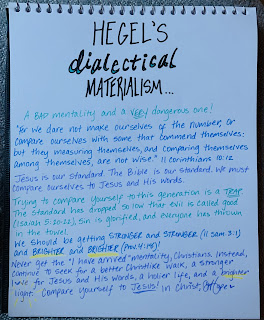 HEGEL'S
dialectical
MATERIALISM...
A BAD mentality and a VERY dangerous one!
"For we dare not make ourselves of the number, or
compare ourselves with some that commend themselves:
but they measuring themselves, and comparing themselves
among themselves, are not wise." II Corinthians 10:12
Jesus is our Standard. The Bible is our Standard. We must
compare ourselves to Jesus and His Words.
Trying to compare yourself to this generation is a TRAP.
The Standard has dropped so low that evil is called good
(Isaiah 5:20-22), Sin is glorified, and everyone has thrown
in the towel.
We should be getting STRONGER and STRONGER (II Sam 3:1)
and BRIGHTER and BRIGHTER (Prov. 4:18)!
Never get the "I have arrived" mentality, Christians. Instead,
continue to seek for a better Christlike walk, a stronger
love for Jesus and His Words, a holier life, and a brighter
light. Compare yourself to Jesus! In Christ,